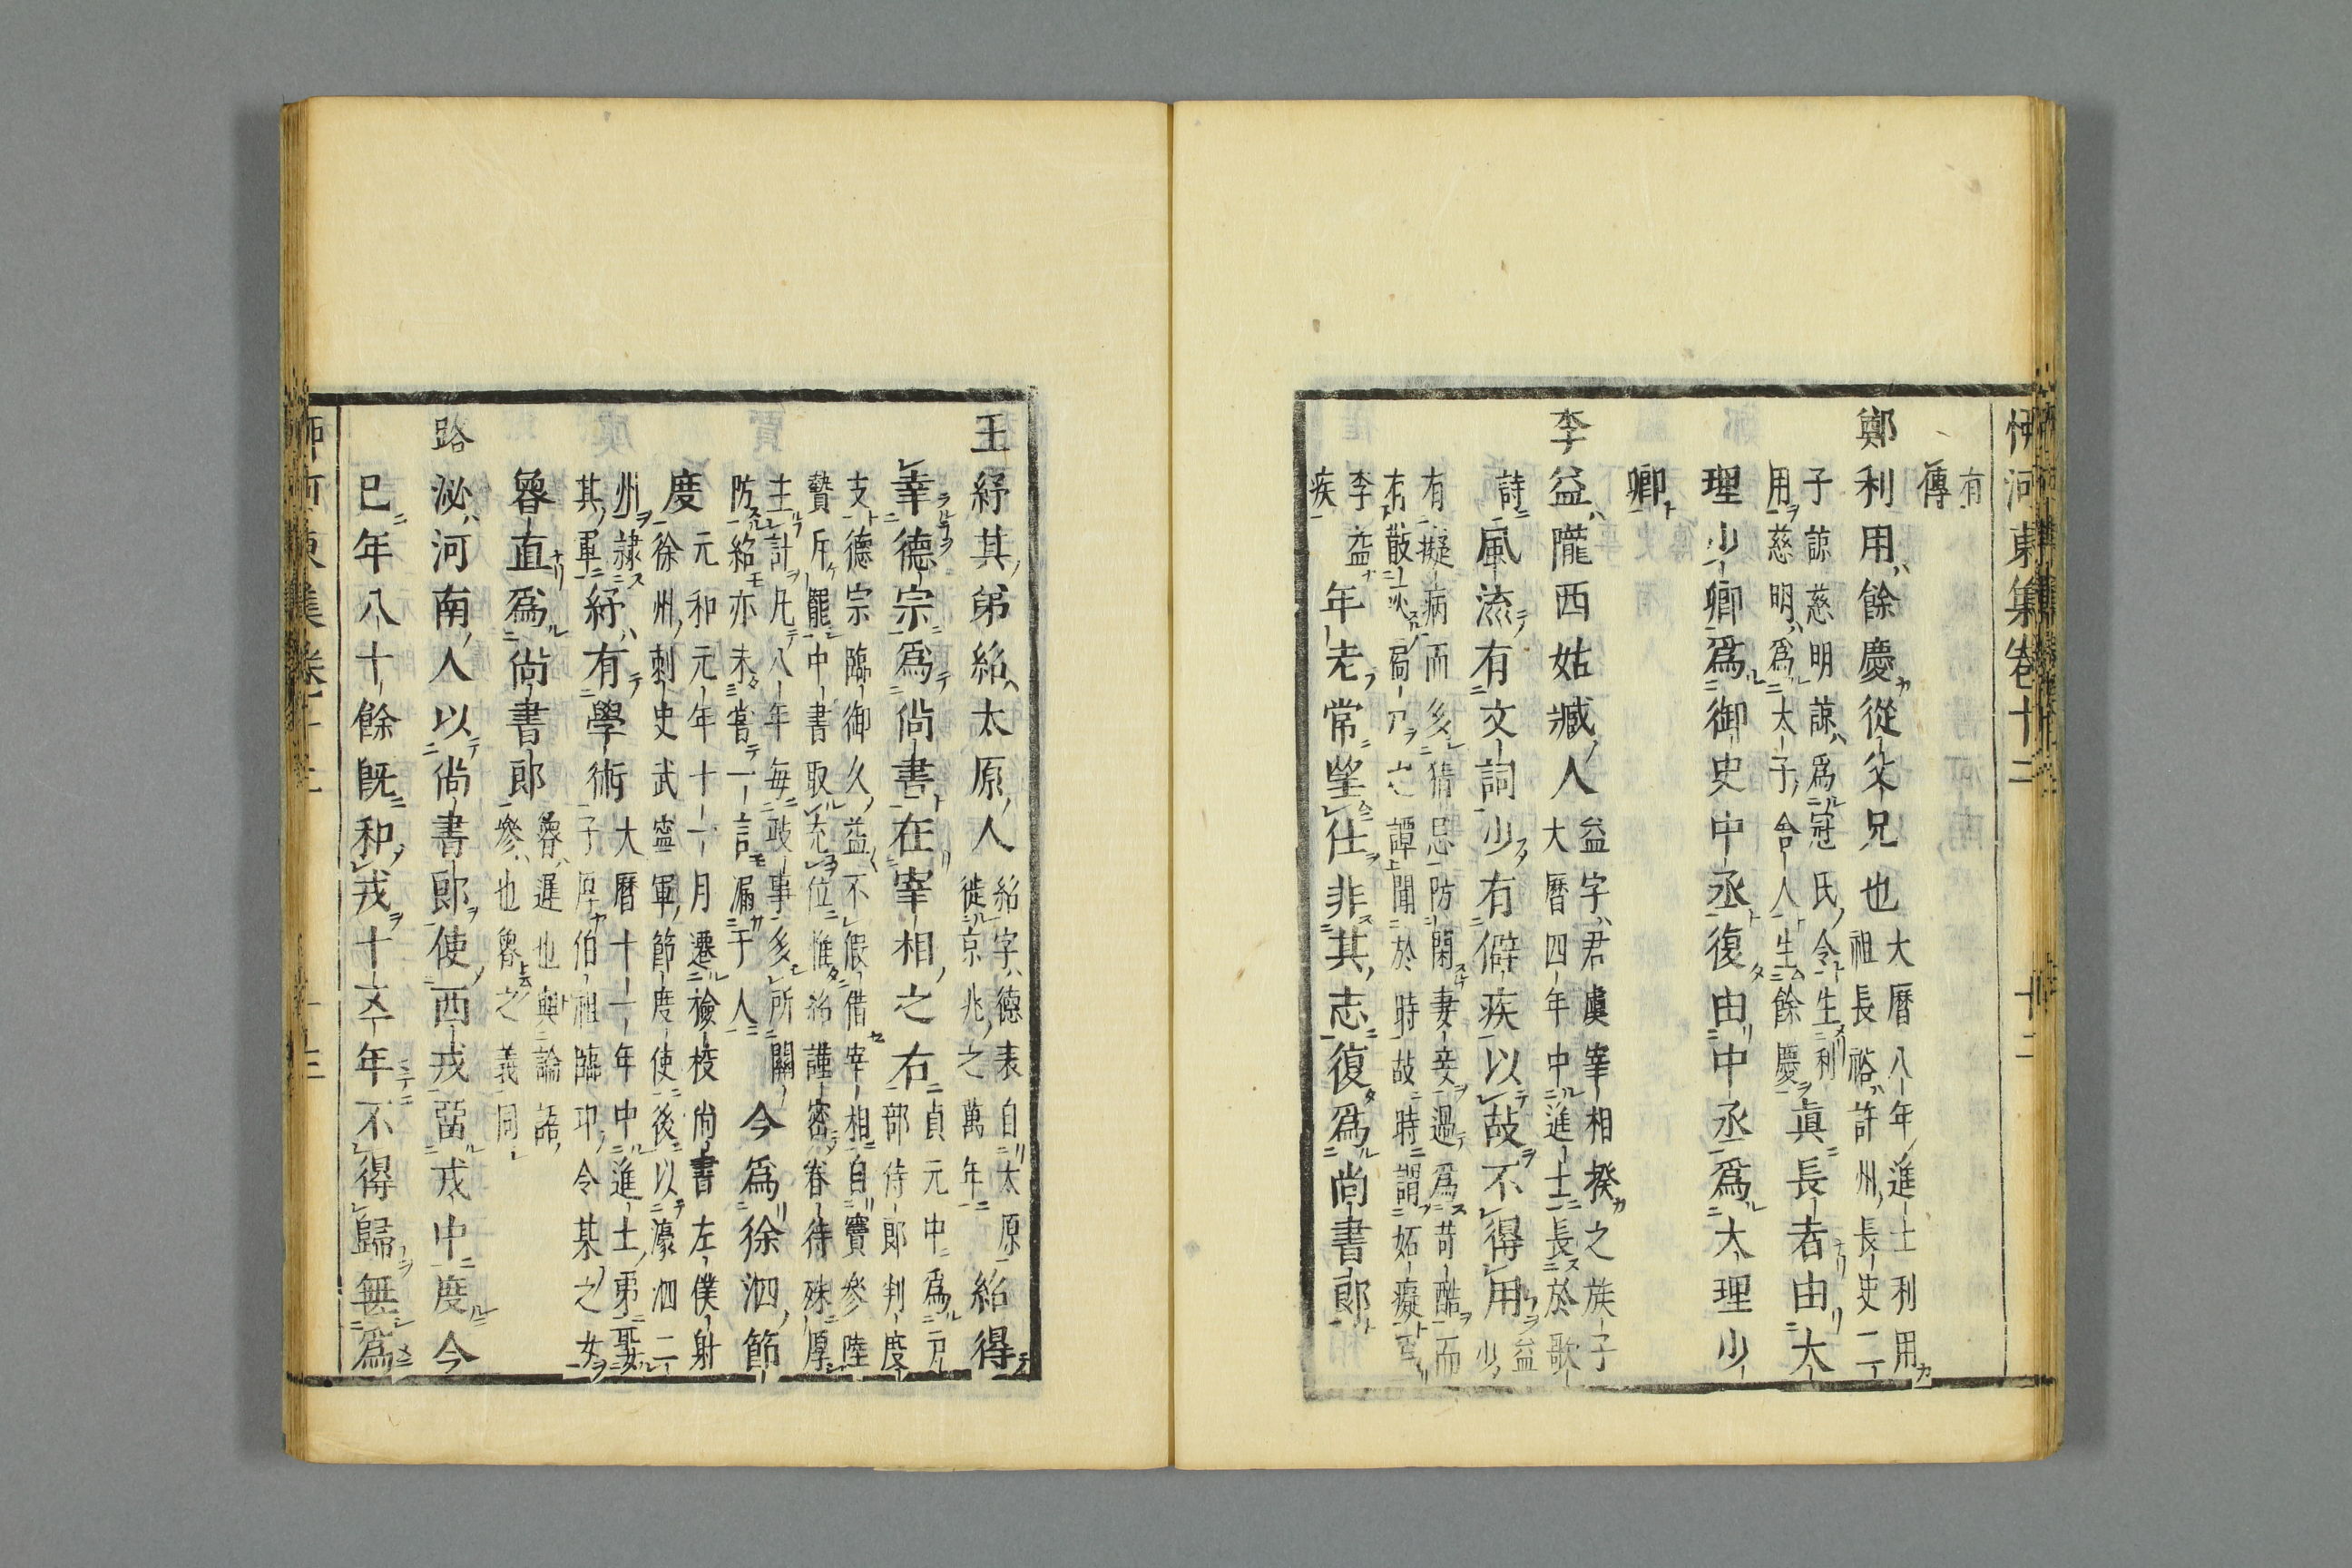 柳河東集卷十二
十二
有
傳
鄭利用餘慶從父兄也
大曆八年進士利用
祖長裕許州長史二
子諒慈明諒爲冠氏令生利
用慈明爲太子舍人生餘慶
眞長者由大
理少卿爲御史中丞復由中丞爲大理少
卿
李益隴西姑臧人
益字君虞宰相揆之族子
大曆四年中進士長於歌
詩
風流有文詞少有僻疾以故不得用
益
少
有癡病而多猜忌防閑妻妾過爲苛酷而
有散灰扃戶之譚聞於時故時謂妬癡
李益
疾
年老常望仕非其志復爲尚書郎
王紓其弟紹太原人
紹字德素自太原
徙京兆之萬年
紹得
幸德宗爲尚書在宰相之右
貞元中爲
部侍郎判度
支德宗臨御久益不假借宰相自竇參陸
贄斥罷中書取充位惟紹謹密眷待殊厚
主計凡八年每政事多所關
防紹亦未嘗一言漏于人
今爲徐泗節
度
元和元年十一月遷檢校尚書左僕射
徐州刺史武寧軍節度使後以濠泗二
州隷
其軍
紓有學術
大曆十一年中進士弟娶
子厚伯祖臨卭令某之女
魯直爲尚書郎
魯遲也與論語
參也魯之義同
路泌河南人以尚書郎使西戎留戎中度今
已年八十餘既和戎十五年不得歸無爲
柳河東集卷十二
十三